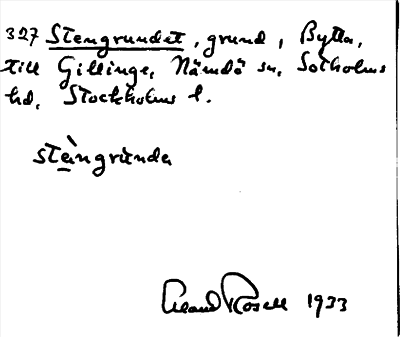 327 Stengrundet, grund, Bytta,
till Gillinge, Nämdö sn, Sotholms
hd, Stockholms l.
stèngrunda
Erland Rosell 1933